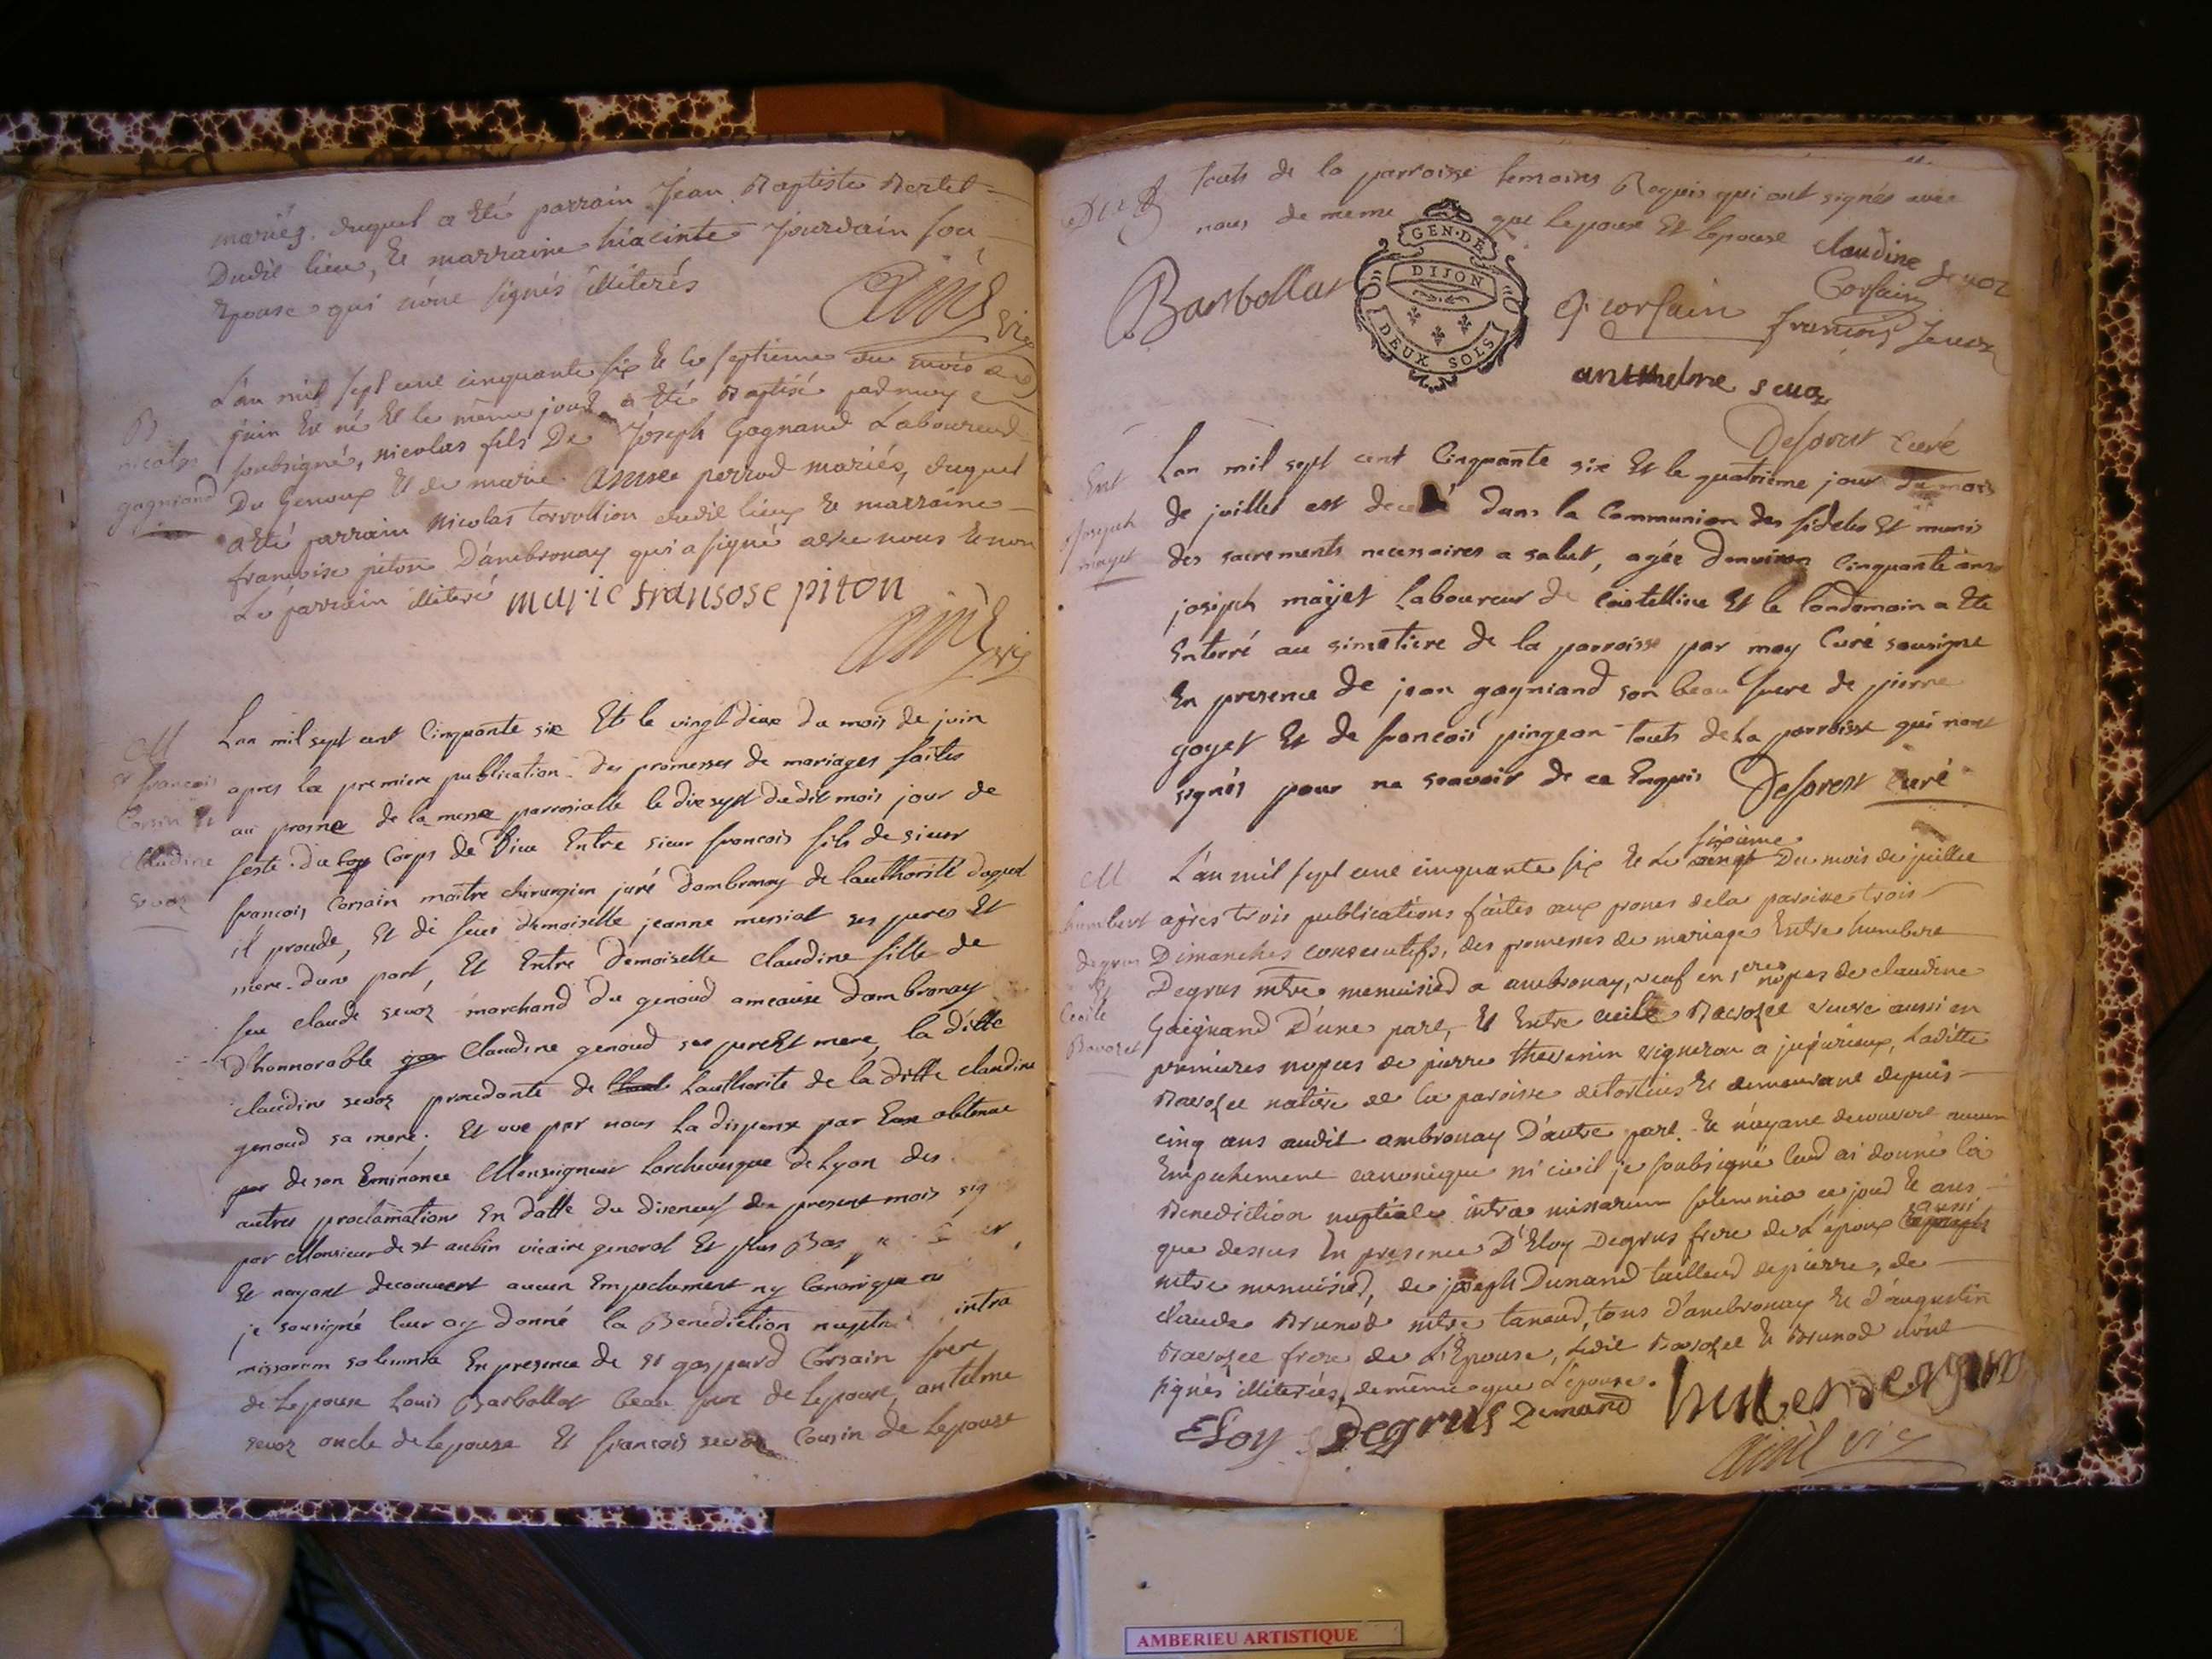 mariés. duquel a été parrain Jean Baptiste Bertet
Dudit lieu, et marraine hiacinte Jourdain son
Epouse qui n'ont signés illiterés
L'an mil sept cent cinquante six et le septieme du mois de
juin est né et le même jour a été Baptisé par moy
soubsigné, nicolas fils De Joseph Gagnand Laboureur
Du Genoux et de marie Annee perrod mariés, duquel
a été parrain Nicolas dudit lieux et marraine
francoise piton D'ambronay qui a signé avec nous et non
Le parrain illiteré marie fransose piton
B
nicolas
gagniand
Lan mil sept cent Cinquante six Et le vingt deux du mois de juin
apres la premiere publication des promesses de mariages faites
au prosne de la messe parroissialle le dix sept dudit mois jour de
feste du Corps de Dieu Entre sieur francois fils de sieur
francois Corsain maitre chirurgien juré Dambronay de lauthorité duquel
il procede, Et de feue Demoiselle jeanne ses peres Et
mere dune part, Et Entre Demoiselle Claudine fille de
feu claude sevoz marchand du genoud ameause dambronay
d'honnorable Claudine genoud ses pere Et mere, la ditte
claudine sevoz procedante de Lauthorité de la ditte claudine
genoud sa mere; Et vue par nous La dispense par Eux obtenue
de son Eminence Monseigneur Larchevesque de Lyon des
autres proclamations En datte du dixneuf du present mois
par Monsieur de st aubin vicaire general Et plus Bas
Et nayant decouvert aucun Empechement ny Canonique
je sousigné leur ay donné la Benediction intra
missarum solemnia En presence de sr gaspard Corsain frere
de Lepoux Louis Barbollat beau frere de Lepouse, antelme
sevoz oncle de Lepouse Et francois sevoz Cousin de Lepouse
M
sr francois
Corsin Et
Claudine
sevoz
touts de la parroisse temoins Requis qui ont signés avec
nous de meme que Lepoux Et Lepouse Claudine sevoz
GEN·DE
DIJON
DEUX SOLS
Barbollat
G corsain
Corsain
francois Sevoz
anthelme sevoz
Deforest Curé
Lan mil sept cent Cinquante six Et le quatrième jour du mois
de juillet est dans la Communion des fideles Et munis
des sacrements necessaires a salut, agée denviron Cinquante ans
joseph mayet Laboureur de Et le londemain a Eté
Enterré au simetiere de la parroisse par moy Curé sousigne
En presence de jean gagniand son beau frere de pierre
goyet Et de francois pingeon touts de La parroisse qui nont
signés pour ne scavoir de ce Enquis Deforest Curé
Ent
Joseph
mayet
sixieme
L'an mil sept cent cinquante six et Le vingt Du mois de juillet
après trois publications faites aux prones de la paroisse trois
Dimanches consecutifs, des promesses de mariage Entre humbert
Degrus mtre menuisier a ambronay, veuf en 1eres nopces de claudine
Gaignand D'une part, Et Entre cecile Bavozet veuve aussi en
premieres nopces de pierre thevenin vigneron a jujurieux, Laditte
Bavozet native de la paroisse de torcieu Et demeurant depuis
cinq ans audit ambronay D'autre part. Et n'ayant decouvert aucun
Empechement canonique ni civil je soubsigné leur ai donné la
Benediction nuptiale intra missarum solemnia ce jour Et ans
que dessus En presence D'Eloy Degrus frere de L'époux aussi
mtre menuisier, de joseph Dunand tailleur de pierre, de
Claude Brunod mtre taneur, tous d'ambronay Et d'augustin
Bavozet frere de L'Epouse, Ledit Bavozet Et Brunod n'ont
signés illiterés, de même que L'épouse.
M
humbert
degrus
Et
Cecile
Bavozet
Eloy Degrus Dunand
AMBERIEU ARTISTIQUE